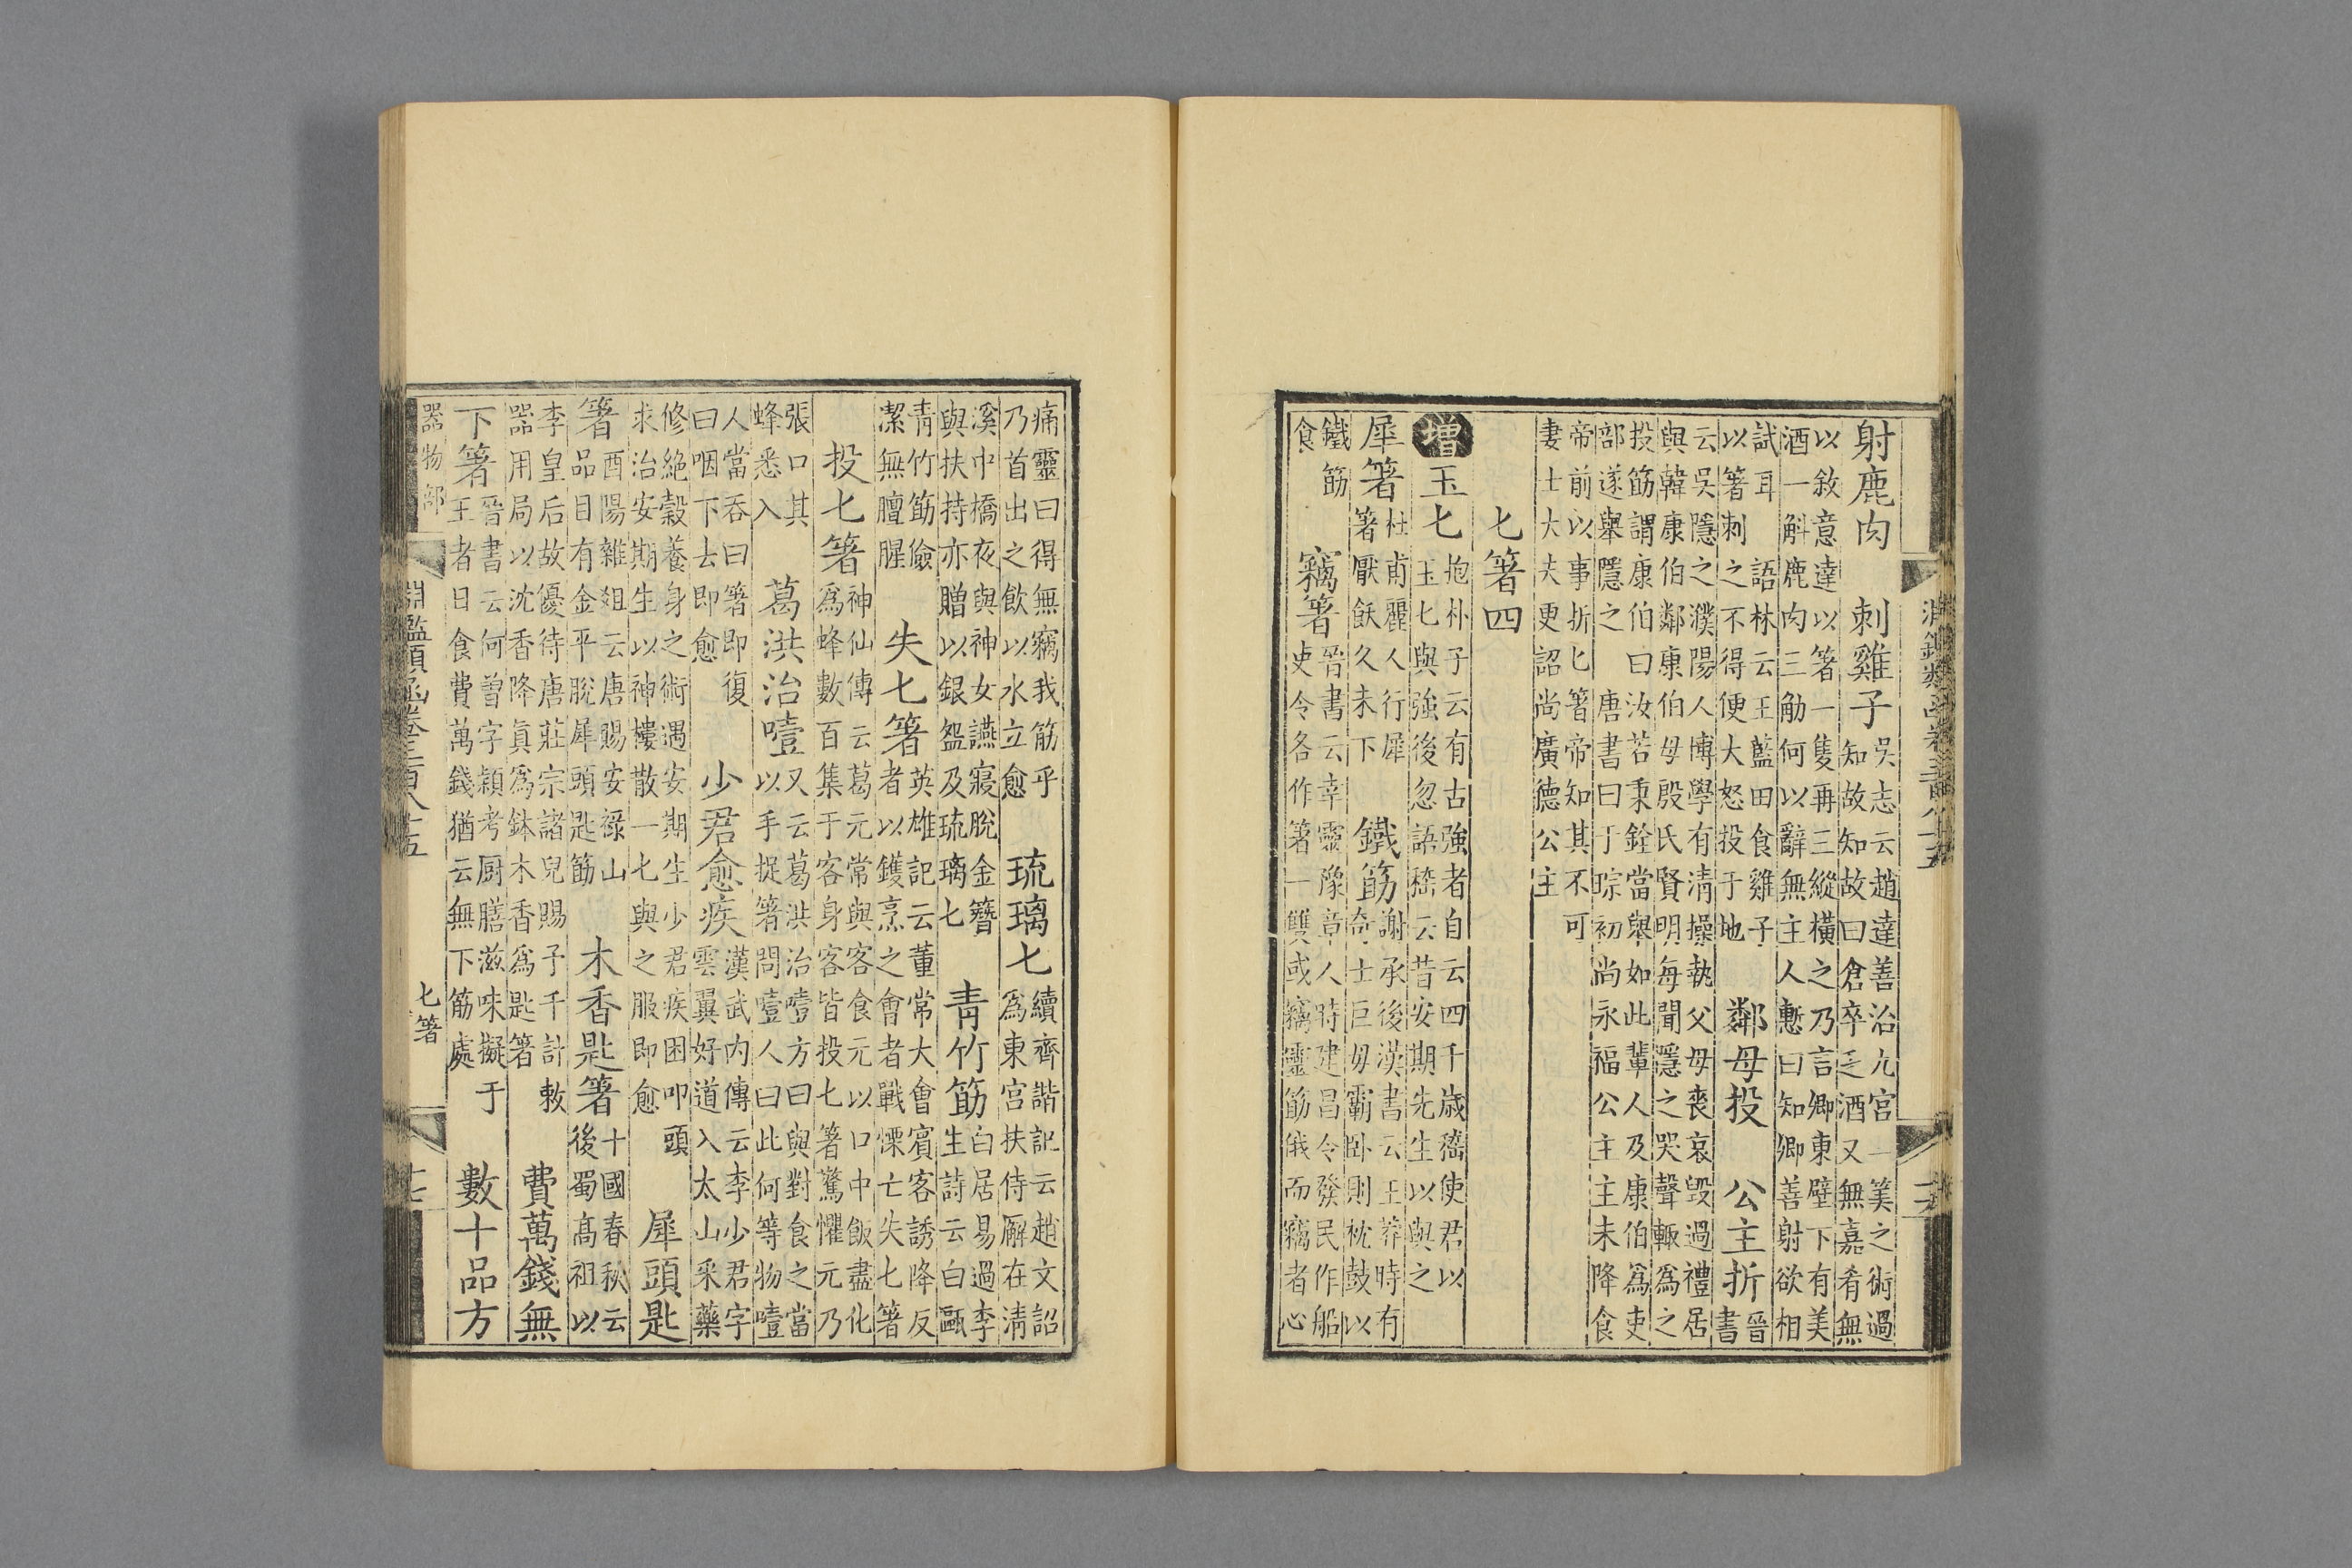 淵鑑類函卷三百八十五
射鹿肉
刺雞子
吳志云趙達善治九宮一筭之術過
知故知故曰倉卒乏酒又無嘉肴無
以敘意達以箸一隻再三縱橫之乃言卿東壁下有美
酒一斛鹿肉三觔何以辭無主人慙曰知卿善射欲相
試耳
語林云王藍田食雞子
以箸刺之不得便大怒投于地
鄰母投
公主折
晉
書
云吳隱之濮陽人博學有清操執父母喪哀毀過禮居
與韓康伯鄰康伯母殷氏賢明每聞隱之哭聲輒爲之
投筯謂康伯曰汝若秉銓當舉如此輩人及康伯爲吏
部遂舉隱之
唐書曰于琮初尚永福公主主未降食
帝前以事折匕箸帝知其不可
妻士大夫更詔尚廣德公主
七箸四
增
玉七
抱朴子云有古強者自云四千歲嵇使君以
玉七與強後忽語嵇云昔安期先生以與之
犀箸
杜甫麗人行犀
箸厭飫久未下
鐵筯
謝承後漢書云王莽時有
奇士巨毋霸卧則枕鼓以
鐵筯
食
竊箸
晉書云幸靈豫章人時建昌令發民作船
吏令各作箸一雙或竊靈筯俄而竊者心
痛靈曰得無竊我筯乎
乃首出之飲以水立愈
琉璃七
續齊諧記云趙文詔
爲東宮扶侍廨在清
溪中橋夜與神女讌寢脫金簪
與扶持亦贈以銀盌及琉璃七
青竹筯
白居易過李
生詩云白甌
青竹筯儉
潔無膻腥
失七箸
英雄記云董常大會賓客誘降反
者以鑊烹之會者戰慄亡失七箸
投七箸
神仙傳云葛元常與客食元以口中飯盡化
爲蜂數百集于客身客皆投七箸驚懼元乃
張口其
蜂悉入
葛洪治噎
又云葛洪治噎方曰與對食之當
以手捉箸問噎人曰此何等物噎
人當吞曰箸即復
曰咽下去即愈
少君愈疾
漢武內傳云李少君字
雲翼好道入太山采藥
修絕穀養身之術遇安期生少君疾困叩頭
求治安期生以神樓散一七與之服即愈
犀頭匙
箸
酉陽雜俎云唐賜安祿山
品目有金平脫犀頭匙筯
木香匙箸
十國春秋云
後蜀高祖以
李皇后故優待唐莊宗諸兒賜子千計敕
器用局以沈香降眞爲鉢木香爲匙箸
費萬錢無
下箸
晉書云何曾字穎考厨膳滋味擬于
王者日食費萬錢猶云無下筯處
數十品方
器物部
淵鑑類函卷三百八十五
七箸
十七